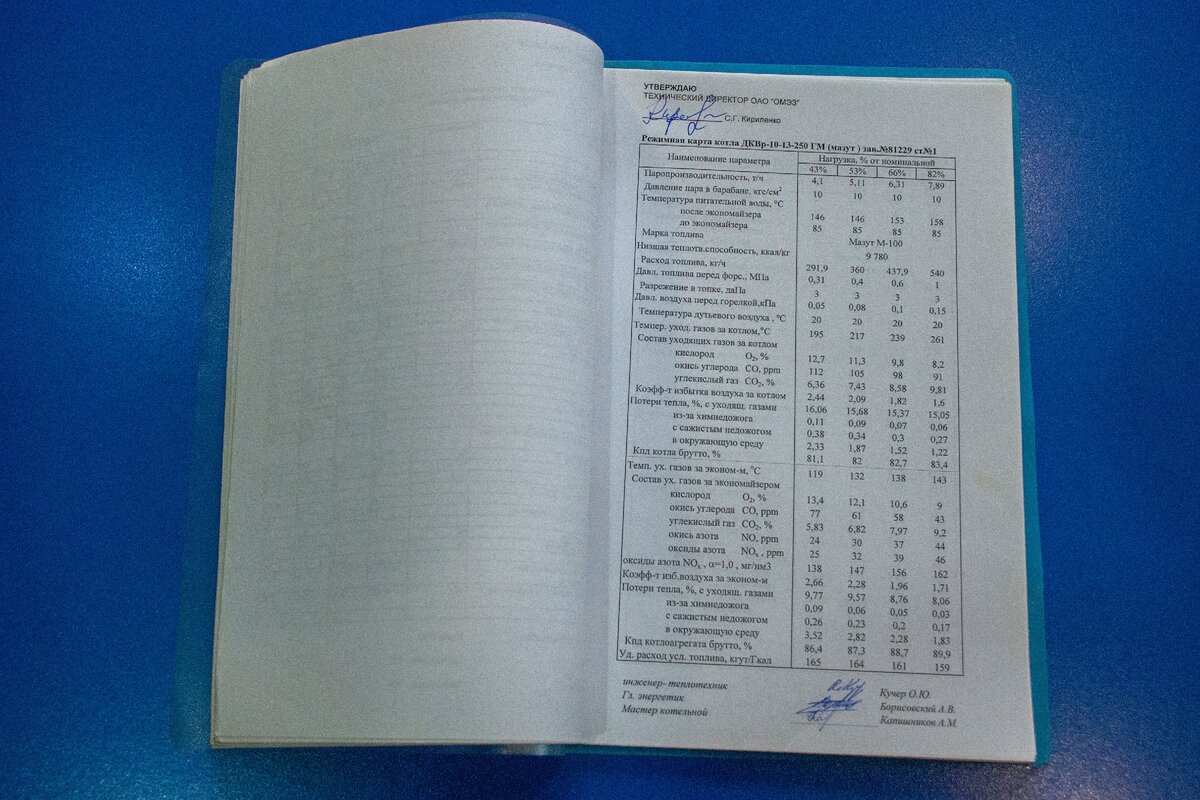 УТВЕРЖДАЮ
ТЕХНИЧЕСКИЙ ДИРЕКТОР ОАО "ОМЭЗ"
С.Г. Кириленко
Режимная карта котла ДКВр-10-13-250 ГМ (мазут ) зав.№81229 ст№1
Наименование параметра Нагрузка, % от номинальной
43% 53% 66% 82%
Паропроизводительность, т/ч 4,1 5,11 6,31 7,89
Давление пара в барабане, кгс/см² 10 10 10 10
Температура питательной воды, °С
после экономайзера 146 146 153 158
до экономайзера 85 85 85 85
Марка топлива Мазут М-100
Низшая теплотв.способность, ккал/кг 9 780
Расход топлива, кг/ч 291,9 360 437,9 540
Давл. топлива перед форс., МПа 0,31 0,4 0,6 1
Разрежение в топке, даПа 3 3 3 3
Давл. воздуха перед горелкой,кПа 0,05 0,08 0,1 0,15
Температура дутьевого воздуха , °С 20 20 20 20
Темпер. уход. газов за котлом,°С 195 217 239 261
Состав уходящих газов за котлом
кислород O₂, % 12,7 11,3 9,8 8,2
окись углерода CO, ppm 112 105 98 91
углекислый газ CO₂, % 6,36 7,43 8,58 9,81
Коэфф-т избытка воздуха за котлом 2,44 2,09 1,82 1,6
Потери тепла, %, с уходящ. газами 16,06 15,68 15,37 15,05
из-за химнедожога 0,11 0,09 0,07 0,06
с сажистым недожогом 0,38 0,34 0,3 0,27
в окружающую среду 2,33 1,87 1,52 1,22
Кпд котла брутто, % 81,1 82 82,7 83,4
Темп. ух. газов за эконом-м, °С 119 132 138 143
Состав ух. газов за экономайзером
кислород O₂, % 13,4 12,1 10,6 9
окись углерода CO, ppm 77 61 58 43
углекислый газ CO₂, % 5,83 6,82 7,97 9,2
окись азота NO, ppm 24 30 37 44
оксиды азота NOₓ , ppm 25 32 39 46
оксиды азота NOₓ , α=1,0 , мг/нм3 138 147 156 162
Коэфф-т изб.воздуха за эконом-м 2,66 2,28 1,96 1,71
Потери тепла, %, с уходящ. газами 9,77 9,57 8,76 8,06
из-за химнедожога 0,09 0,06 0,05 0,03
с сажистым недожогом 0,26 0,23 0,2 0,17
в окружающую среду 3,52 2,82 2,28 1,83
Кпд котлоагрегата брутто, % 86,4 87,3 88,7 89,9
Уд. расход усл. топлива, кгут/Гкал 165 164 161 159
инженер- теплотехник Кучер О.Ю.
Гл. энергетик Борисовский А.В.
Мастер котельной Капишников А.М.